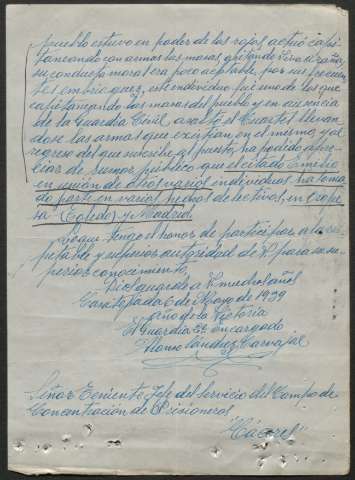 pueblo estuvo en poder de los rojos actuó capi-
taneando con armas las masas, gritando
su conducta moral era poco aceptable, por sus frecuen-
tes embriaguez, este individuo fué uno de los que
capitaneando las masas del pueblo y en ausencia
de la Guardia Civil asaltó el Cuartel llevan-
dose las armas que existian en el mismo, y al
regreso del que suscribe al puesto, ha podido apre-
ciar de rumor público que el citado Emilio
en unión de otros varios individuos ha toma-
do parte en varios hechos delictivos, en Orope-
sa (Toledo) y Madrid.
Lo que tengo el honor de participar a la res-
petable y superior autoridad de V. para su su-
perior conocimiento.
Dios guarde a V. muchos años
6 de Mayo de 1939
año de la Victoria
El Guardia 2º encargado
Alonso Sánchez Carvajal
Señor Teniente Jefe del Servicio del Campo de
Concentración de Prisioneros
"Cáceres"